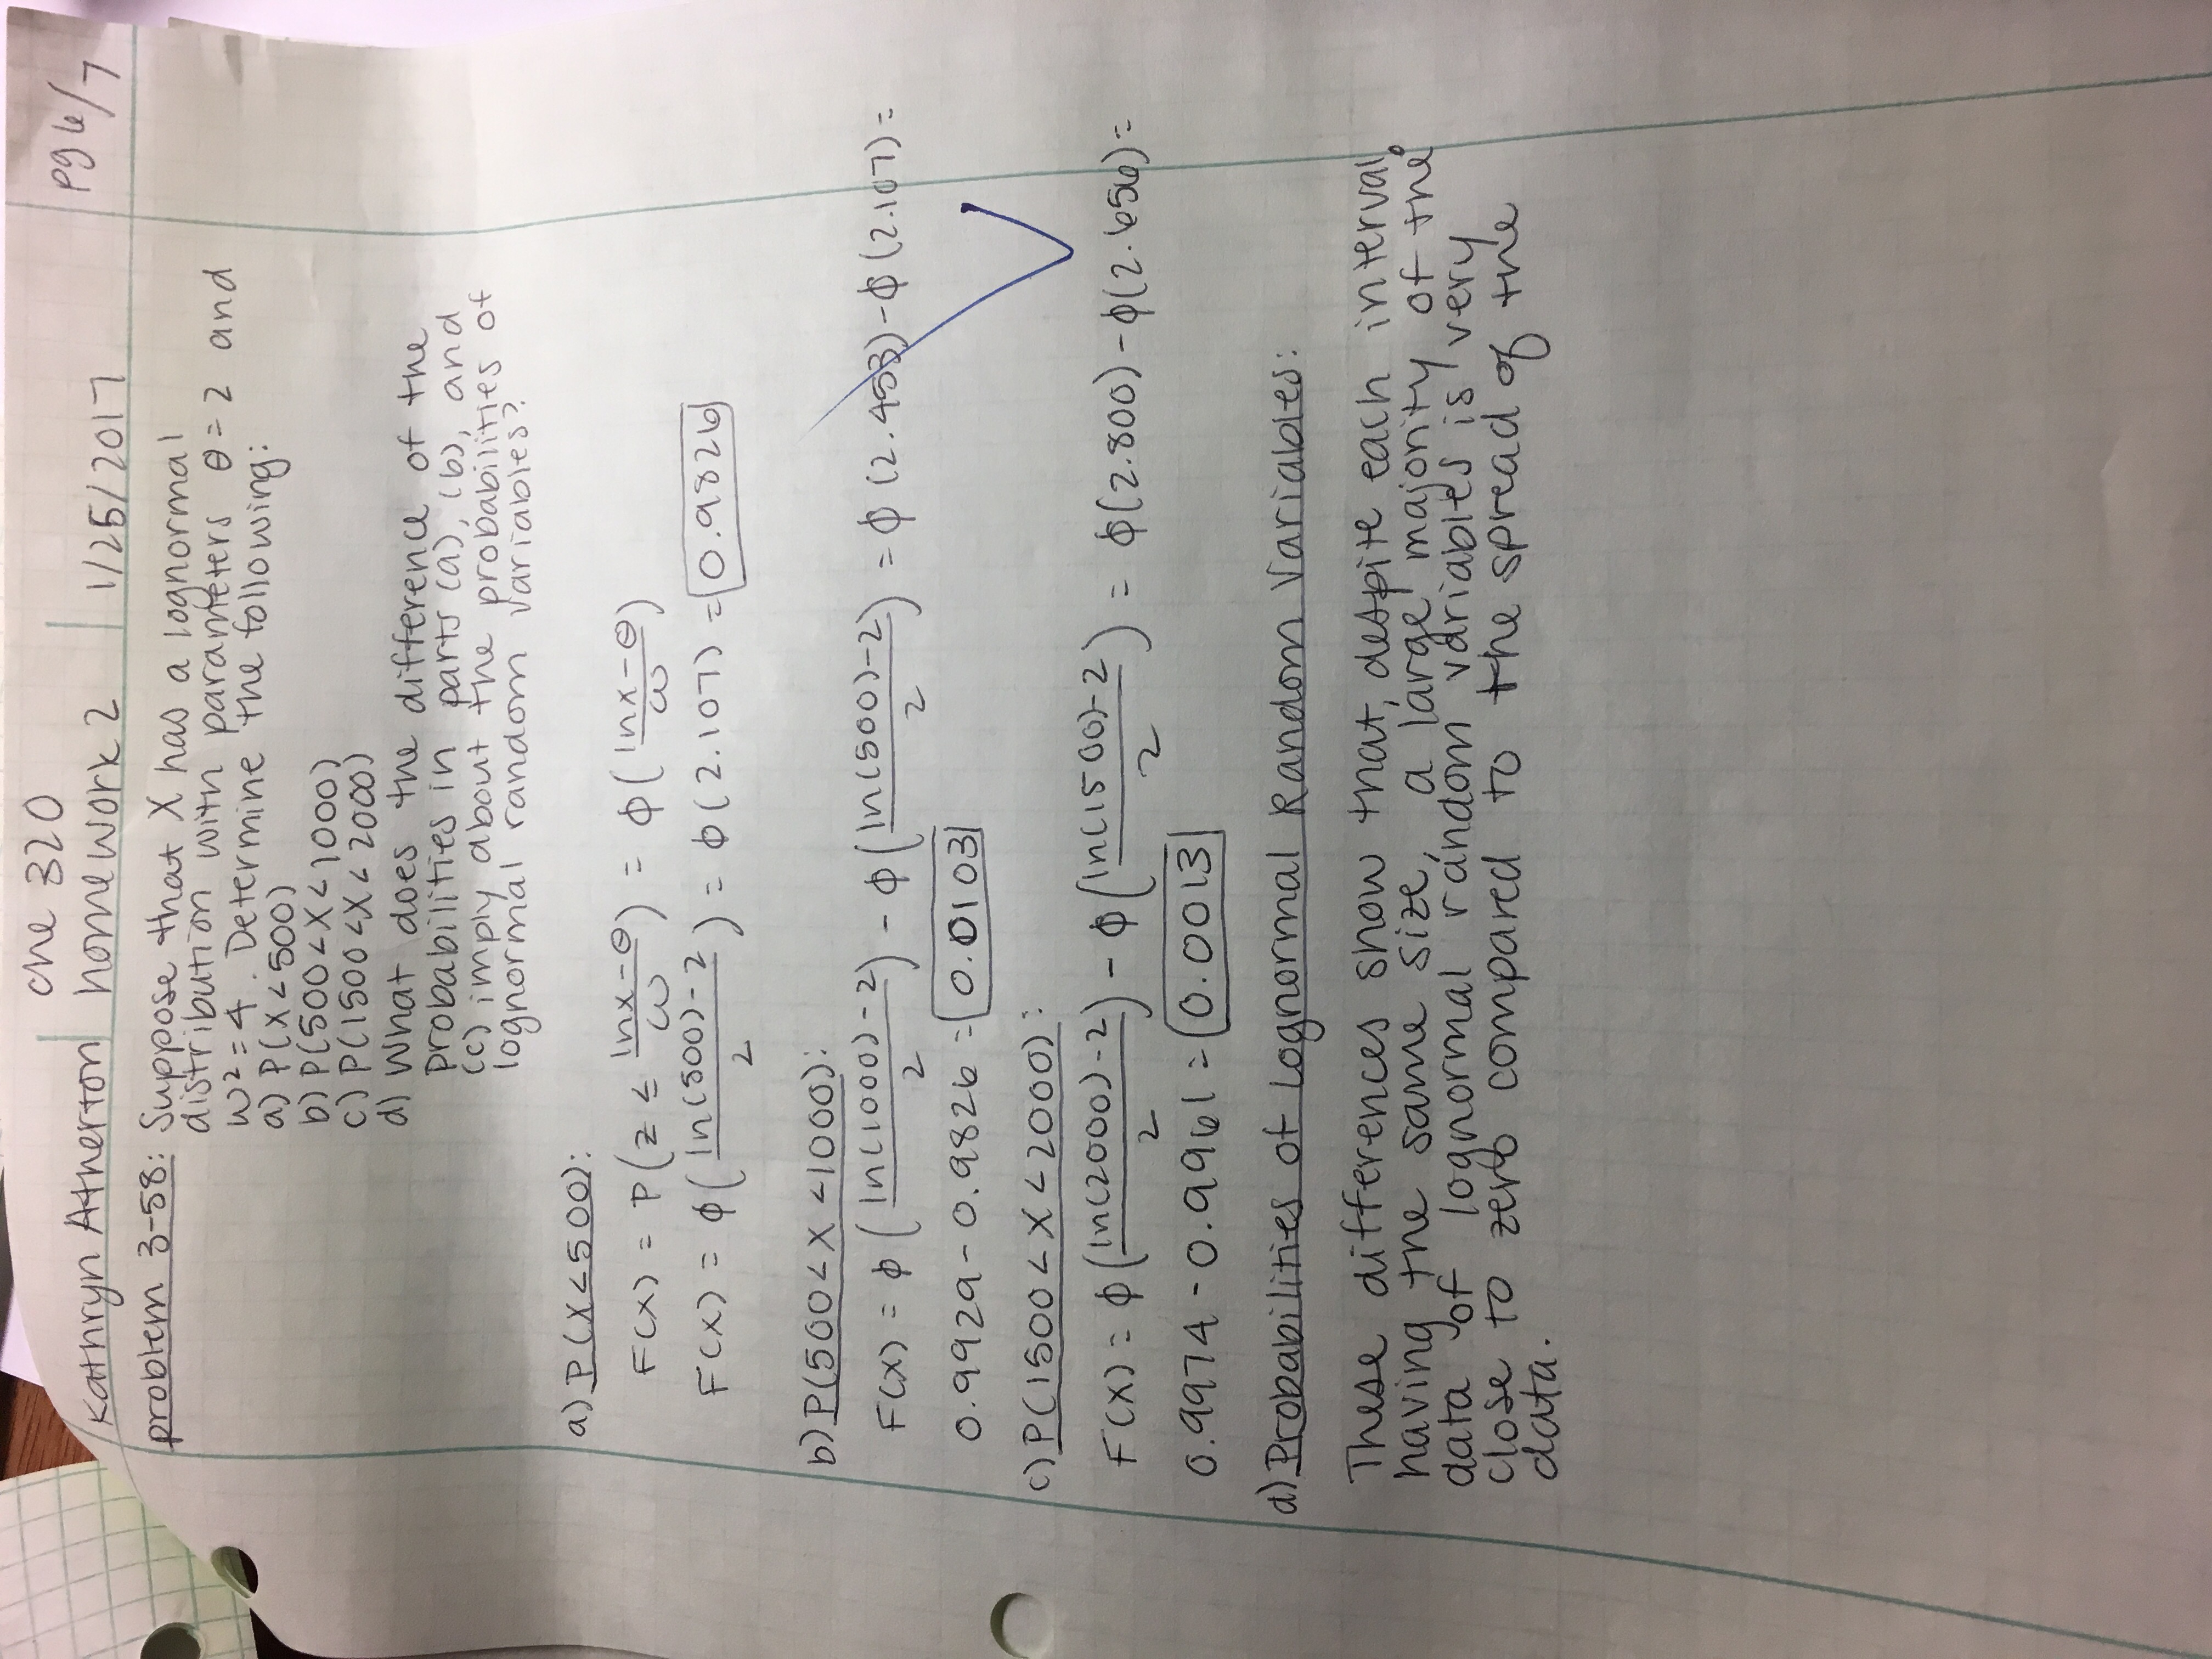 che 320
Kathryn Atherton homework 2 1/25/2017 pg 6/7
problem 3-58: Suppose that X has a lognormal
distribution with parameters θ = 2 and
ω² = 4. Determine the following:
a) P(X < 500)
b) P(500 < X < 1000)
c) P(1500 < X < 2000)
d) What does the difference of the
probabilities in parts (a), (b), and
(c) imply about the probabilities of
lognormal random variables?
a) P(X < 500):
F(X) = P(z ≤ (lnx - θ)/ω) = ϕ((lnx - θ)/ω)
F(X) = ϕ((ln(500) - 2)/2) = ϕ(2.107) = 0.9826
b) P(500 < X < 1000):
F(X) = ϕ((ln(1000) - 2)/2) - ϕ((ln(500) - 2)/2) = ϕ(2.453) - ϕ(2.107) =
0.9929 - 0.9826 = 0.0103
c) P(1500 < X < 2000):
F(X) = ϕ((ln(2000) - 2)/2) - ϕ((ln(1500) - 2)/2) = ϕ(2.800) - ϕ(2.656) =
0.9974 - 0.9961 = 0.0013
d) Probabilities of Lognormal Random Variables:
These differences show that, despite each interval
having the same size, a large majority of the
data of lognormal random variables is very
close to zero compared to the spread of the
data.